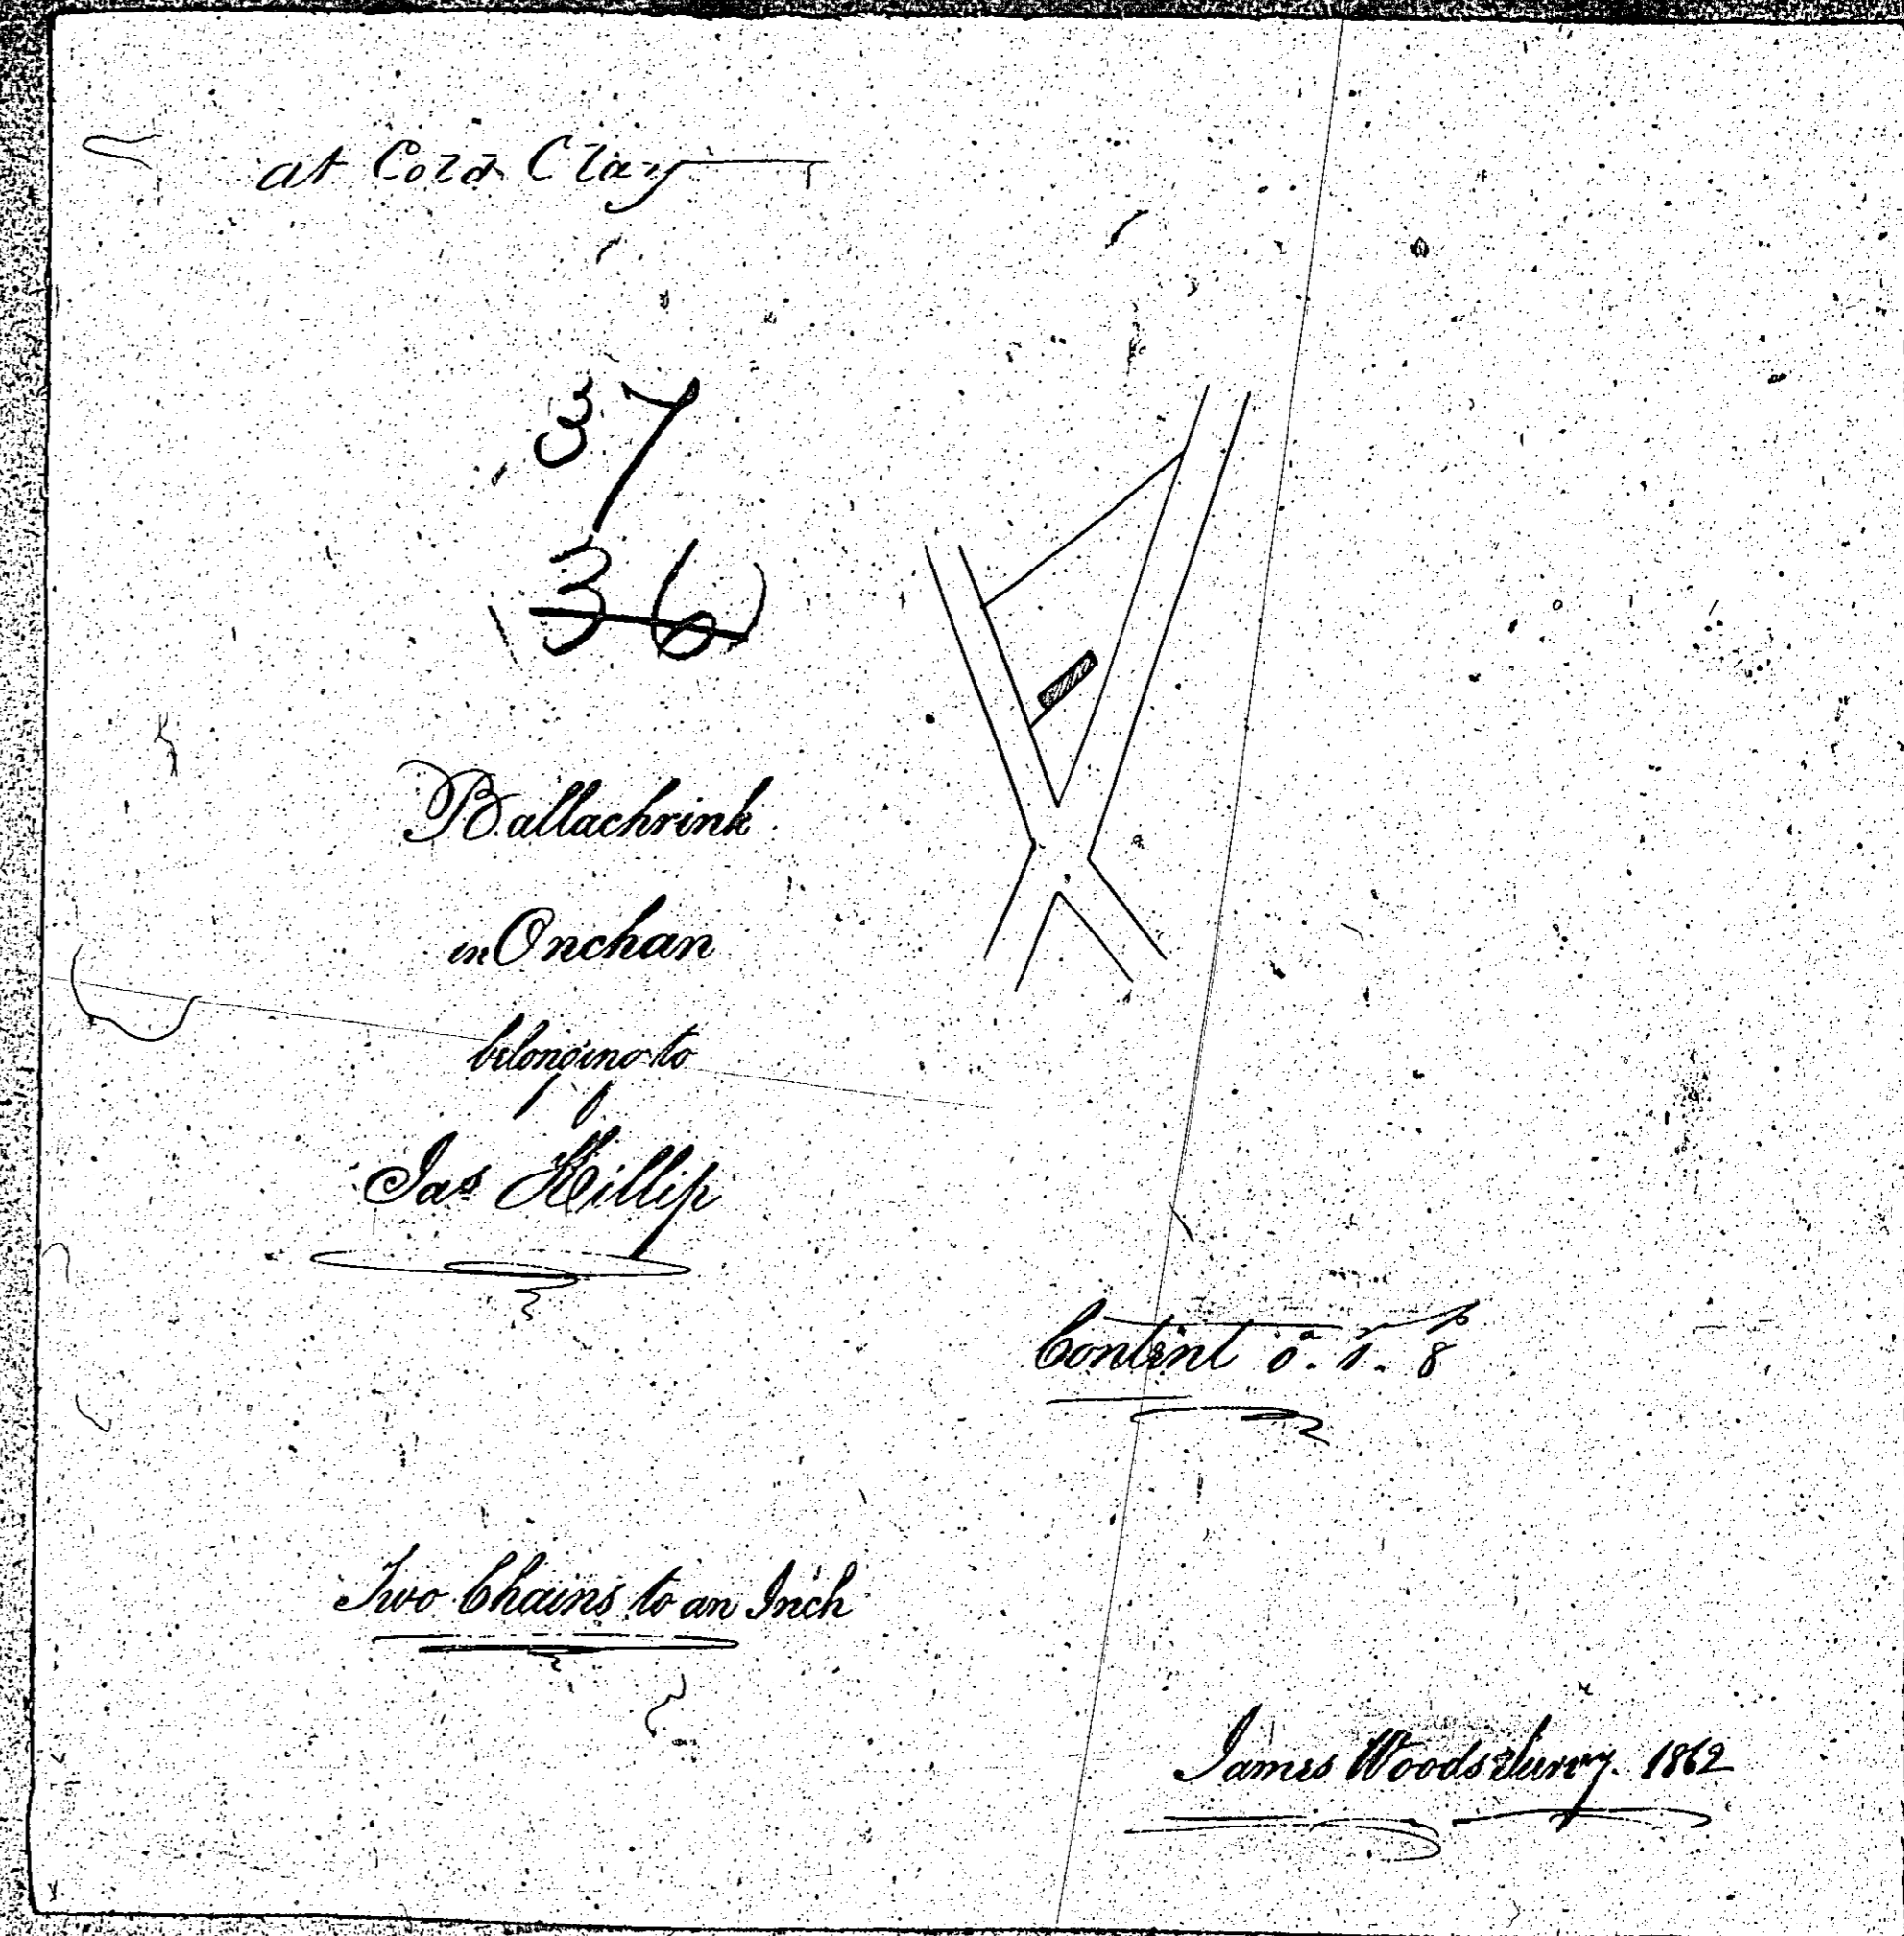 at Cold Clay
37
36
Ballachrink
in Onchan
belonging to
Jas Killip
a r p
Content 0. 1. 8
Two Chains to an Inch
James Woods Survr. 1862